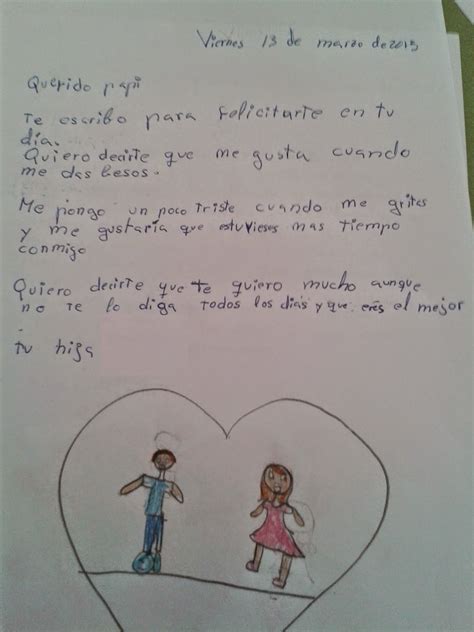 Viernes 13 de marzo de 2015
Querido papi
Te escribo para felicitarte en tu
día.
Quiero decirte que me gusta cuando
me das besos.
Me pongo un poco triste cuando me grites
y me gustaria que estuvieses mas tiempo
conmigo
Quiero decirte que te quiero mucho aunque
no te lo diga todos los días y que erés el mejor
.
tu hija